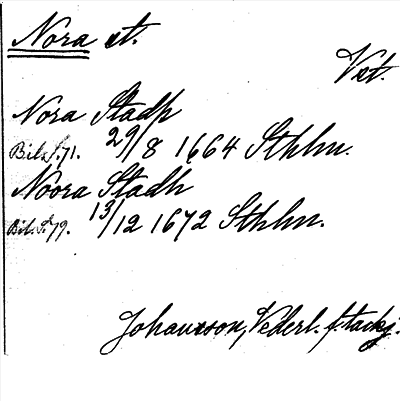 Nora st.
Vst.
Nora Stadh
Bil. s. 71. 29/8 1664 Sthlm.
Noora Stadh
Bil. s. 79. 13/12 1672 Sthlm.
Johansson, Nederl.